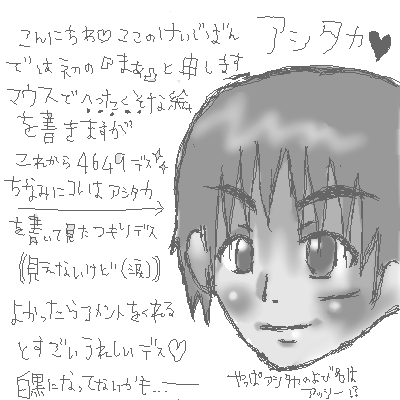 アシタカ♥
こんにちわ♡ここのけいじばん
では初の『まぁ』と申します
マウスでへったくそな絵
を書きますが
これから4649デス
ちなみにコレはアシタカ
を書いて見たつもりデス
((見えないけど(涙)))
よかったらコメントをくれる
とすごいうれしいデス♡
白黒になってないかも…
やっぱアシタカのよび名は
アッシー!?